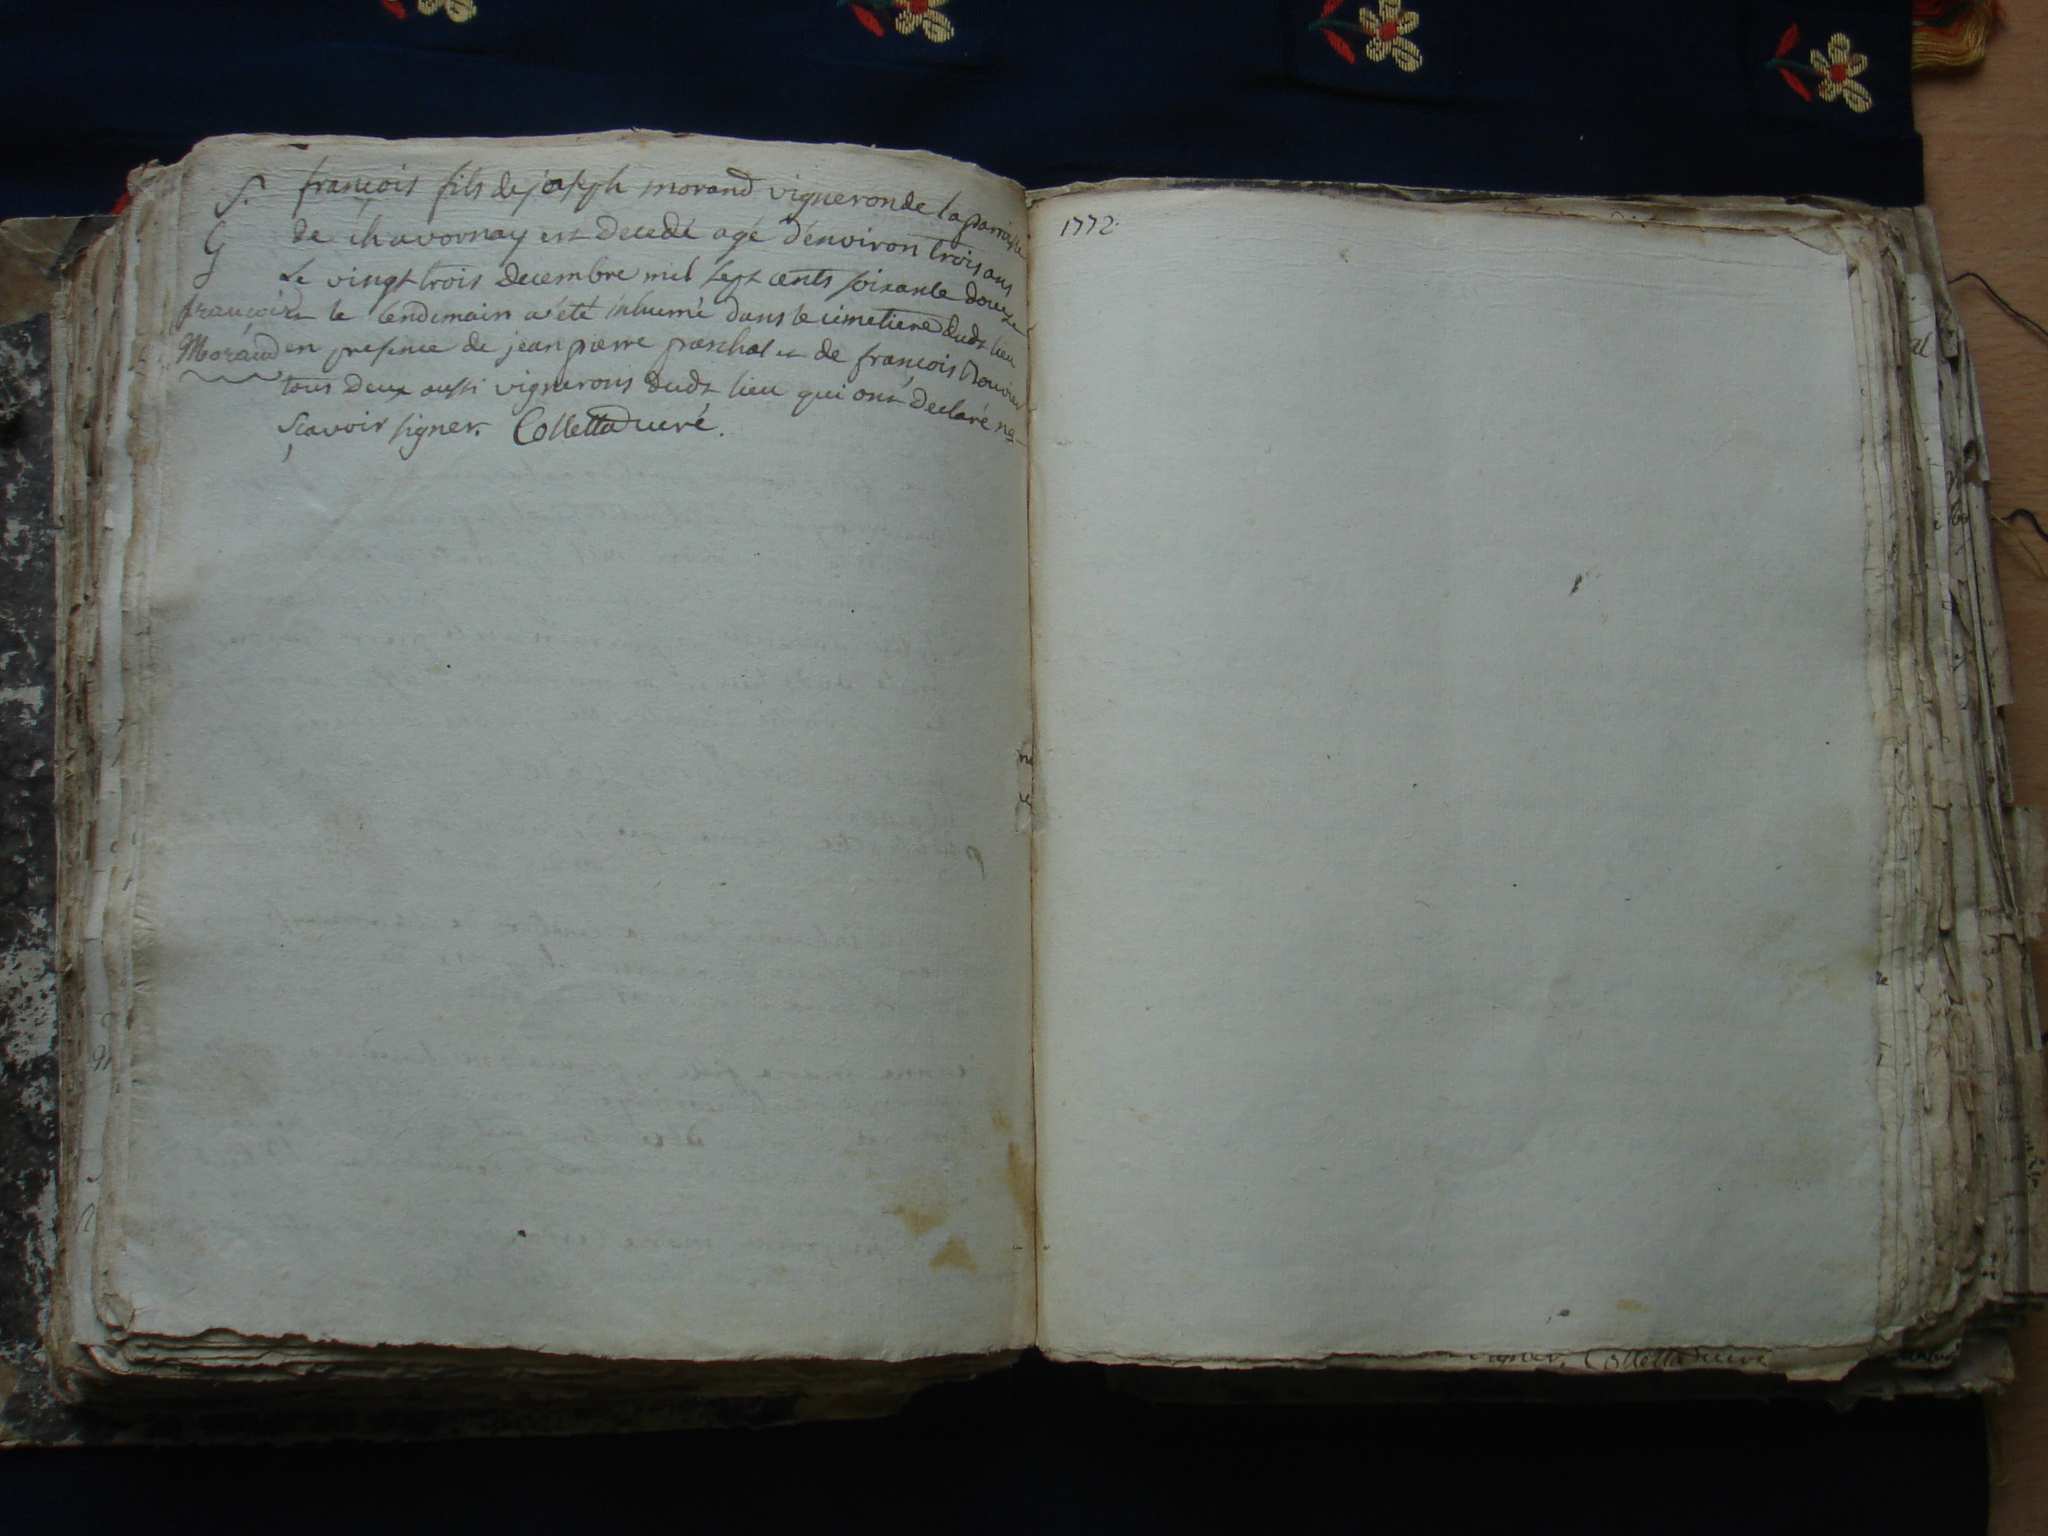 S. françois fils de joseph morand vigneron de la parroisse
G de chavornay est decedé agé d'environ trois ans
Le vingt trois decembre mil sept cents soixante douze
françois et le lendemain a été inhumé dans le cimetiere dudt lieu
Morand en presence de jean pierre paschal et de françois
tous deux aussi vignerons dudt lieu qui ont declaré ne
sçavoir signer. Colletta curé.
1772.
signer. Colletta curé